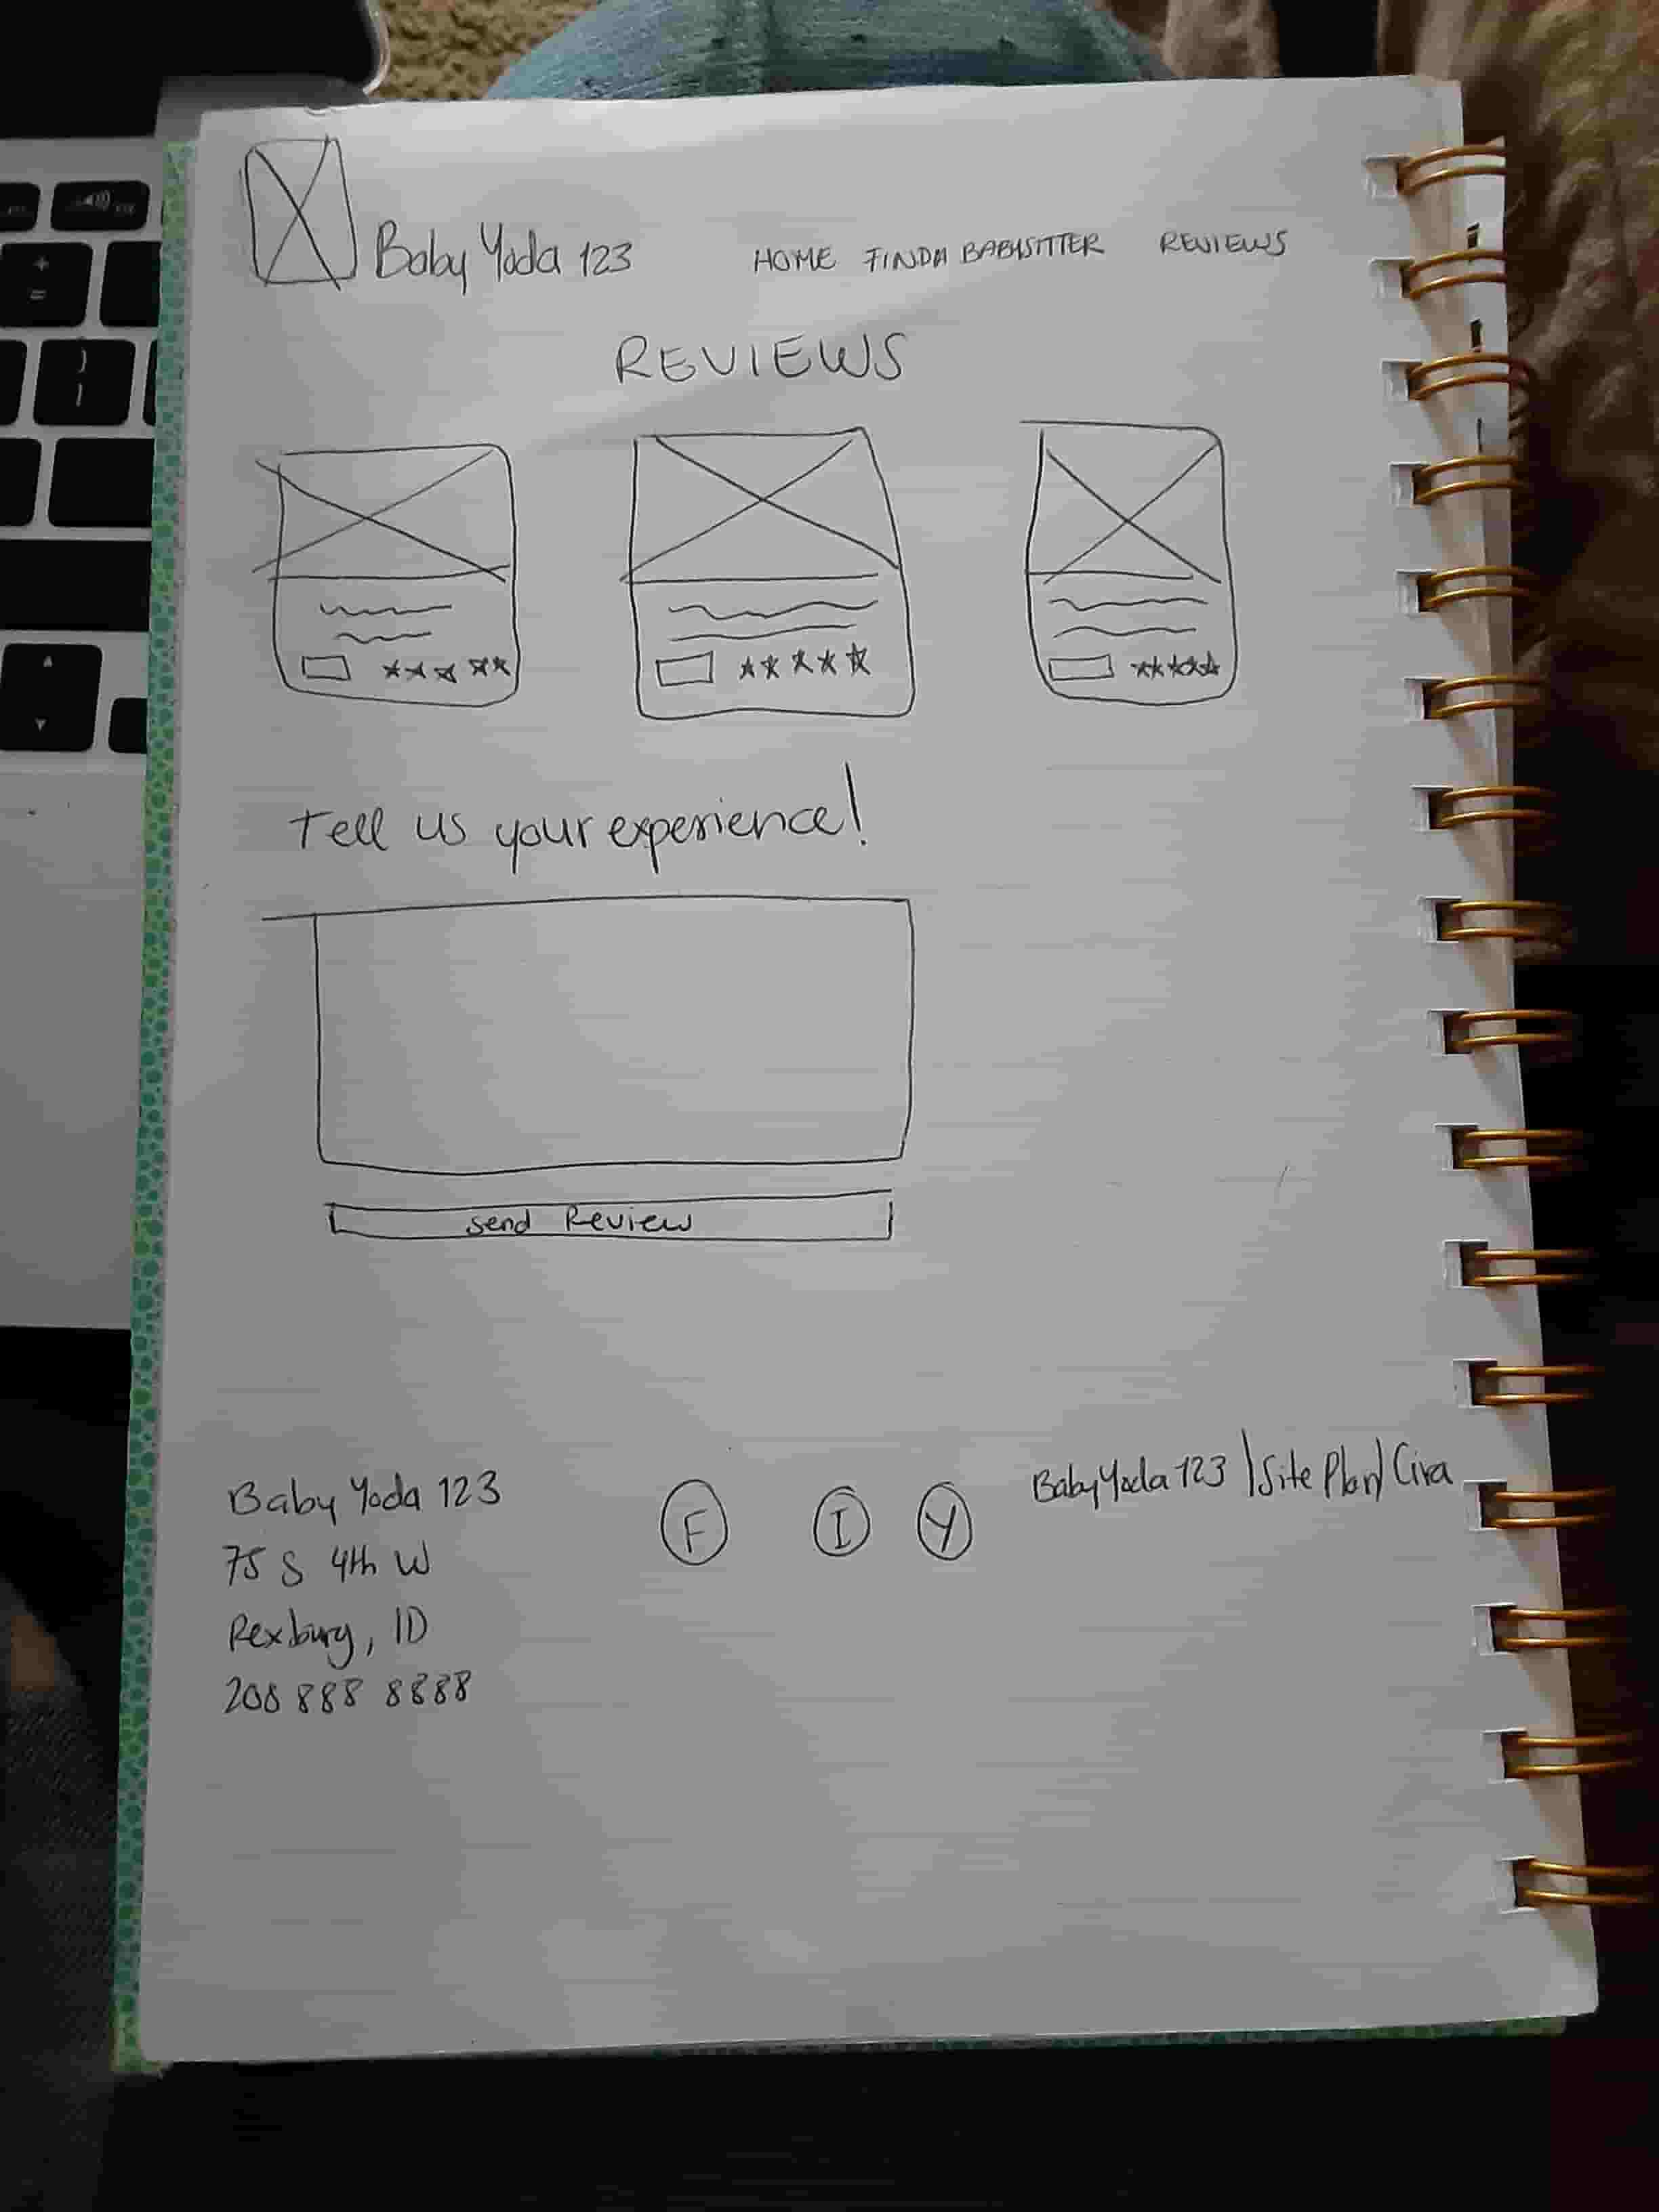 Baby Yoda 123 HOME FIND A BABYSITTER REVIEWS
REVIEWS
Tell us your experience!
Send Review
Baby Yoda 123
75 S 4th W
Rexburg, ID
208 888 8888
F I Y
Baby Yoda 123 | Site Plan |